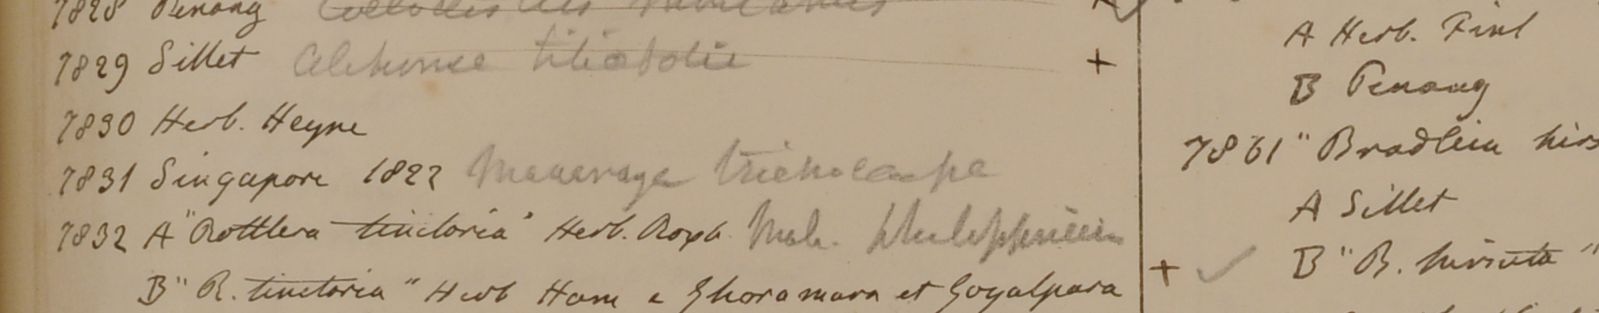 7828 Penang
7829 Sillet tiliaefolia +
7830 Herb. Heyne
7831 Singapore 1822 Macaranga trichocarpa
7832 A "Rottlera tinctoria" Herb. Roxb. Mal. philippinensis
B "R. tinctoria" Herb Ham e Ghoramara et Goyalpara
A Herb. Finl
B Penang
7861 "Bradleia hirs
A Sillet
+ ✓ B "B. hirsuta"